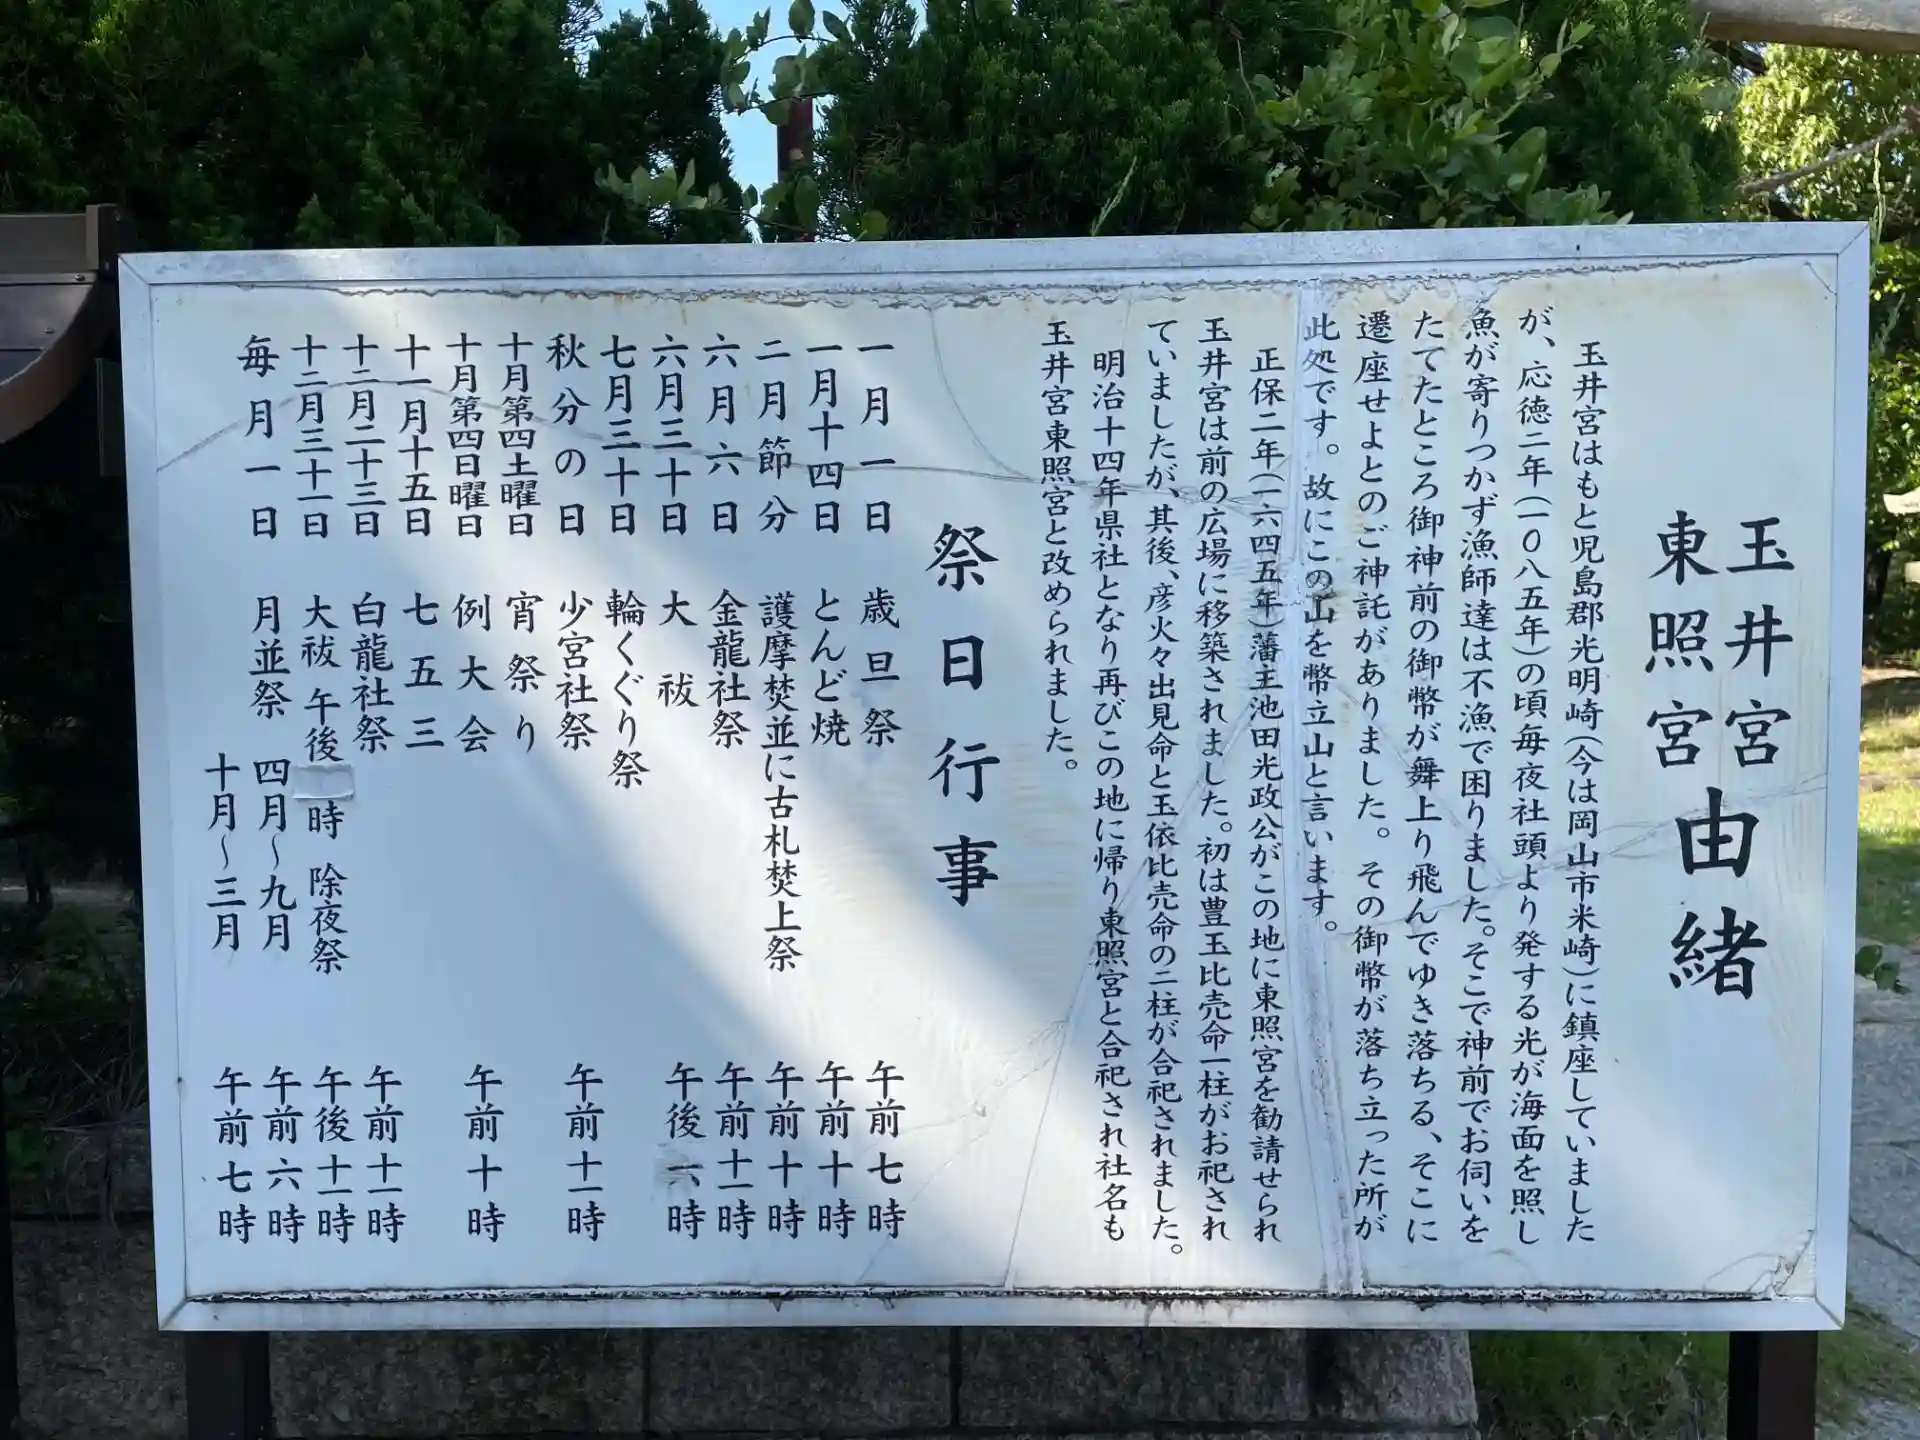 玉井宮
東照宮 由緒
玉井宮はもと児島郡光明崎(今は岡山市米崎)に鎮座していました
が、応徳二年(一〇八五年)の頃毎夜社頭より発する光が海面を照し
魚が寄りつかず漁師達は不漁で困りました。そこで神前でお伺いを
たてたところ御神前の御幣が舞上り飛んでゆき落ちる、そこに
遷座せよとのご神託がありました。その御幣が落ち立った所が
此処です。故にこの山を幣立山と言います。
正保二年(一六四五年)藩主池田光政公がこの地に東照宮を勧請せられ
玉井宮は前の広場に移築されました。初は豊玉比売命一柱がお祀され
ていましたが、其後、彦火々出見命と玉依比売命の二柱が合祀されました。
明治十四年県社となり再びこの地に帰り東照宮と合祀され社名も
玉井宮東照宮と改められました。
祭日行事
一月一日 歳旦祭 午前七時
一月十四日 とんど焼 午前十時
二月節分 護摩焚並に古札焚上祭 午前十時
六月六日 金龍社祭 午前十一時
六月三十日 大祓 午後六時
七月三十日 輪くぐり祭
秋分の日 少宮社祭 午前十一時
十月第四土曜日 宵祭り
十月第四日曜日 例大会 午前十時
十一月十五日 七五三
十二月二十三日 白龍社祭 午前十一時
十二月三十一日 大祓 午後 時 除夜祭 午後十一時
毎月一日 月並祭 四月〜九月 午前六時
十月〜三月 午前七時